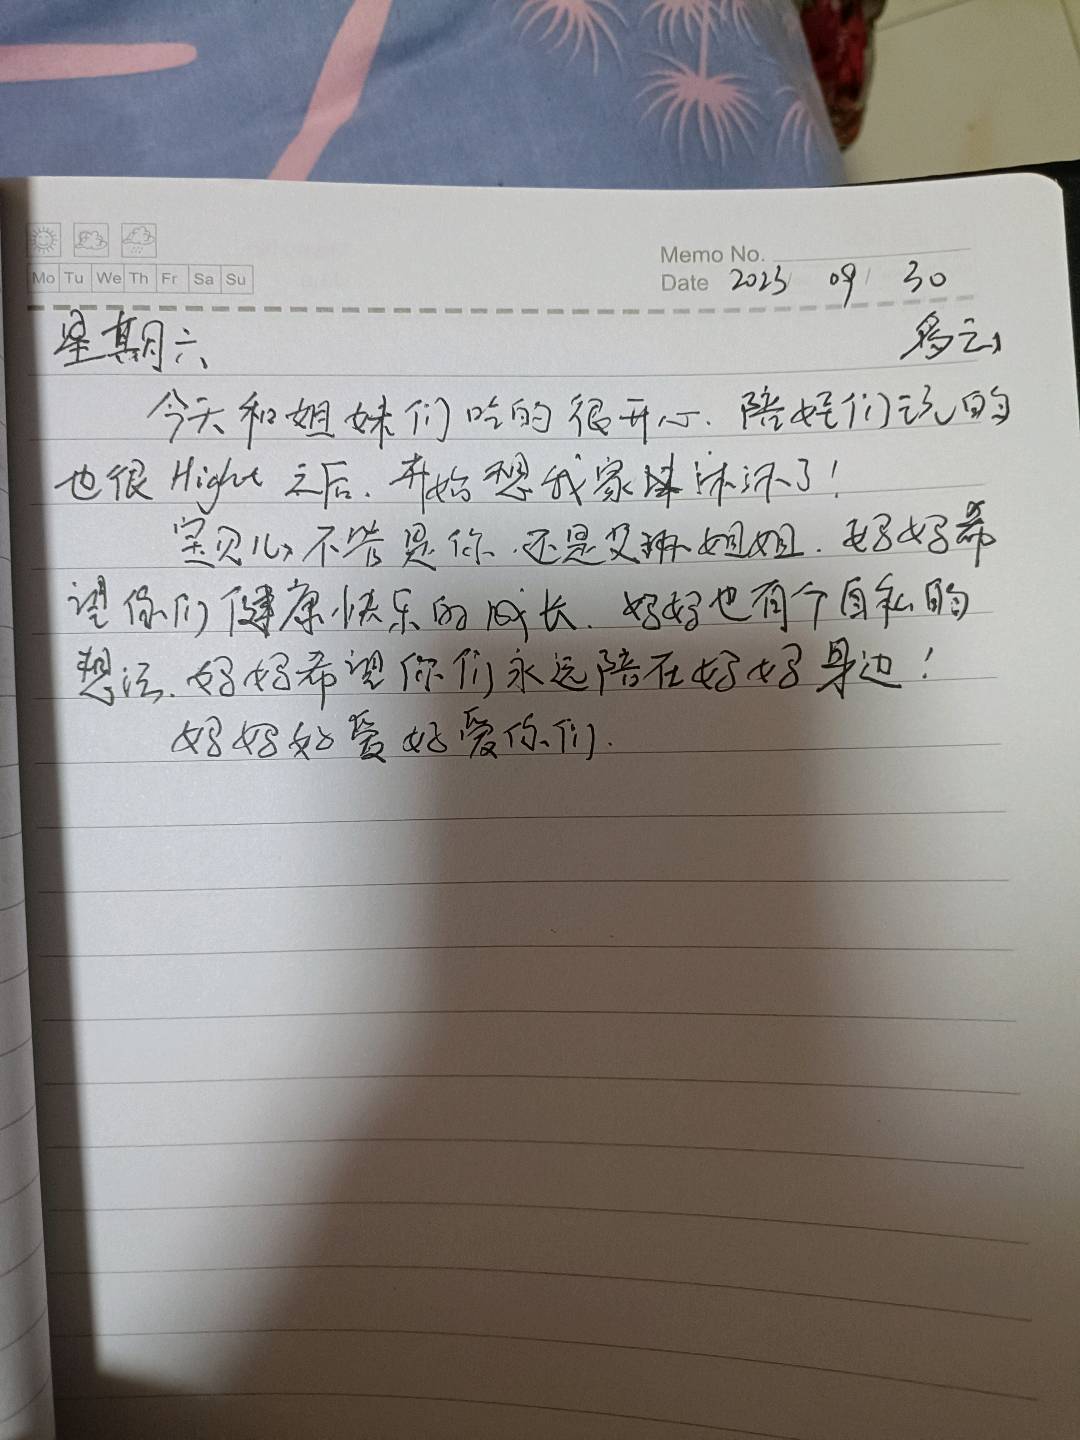 Mo Tu We Th Fr Sa Su
Memo No.
Date 2023 09 30
星期六 多云
今天和姐妹们吃的很开心.陪好们玩的
也很Hight之后.开始想我家沫沫了!
宝贝儿,不管是你.还是艾琳姐姐.妈妈希
望你们健康快乐的成长.妈妈也有个自私的
想法.妈妈希望你们永远陪在妈妈身边!
妈妈好爱好爱你们.